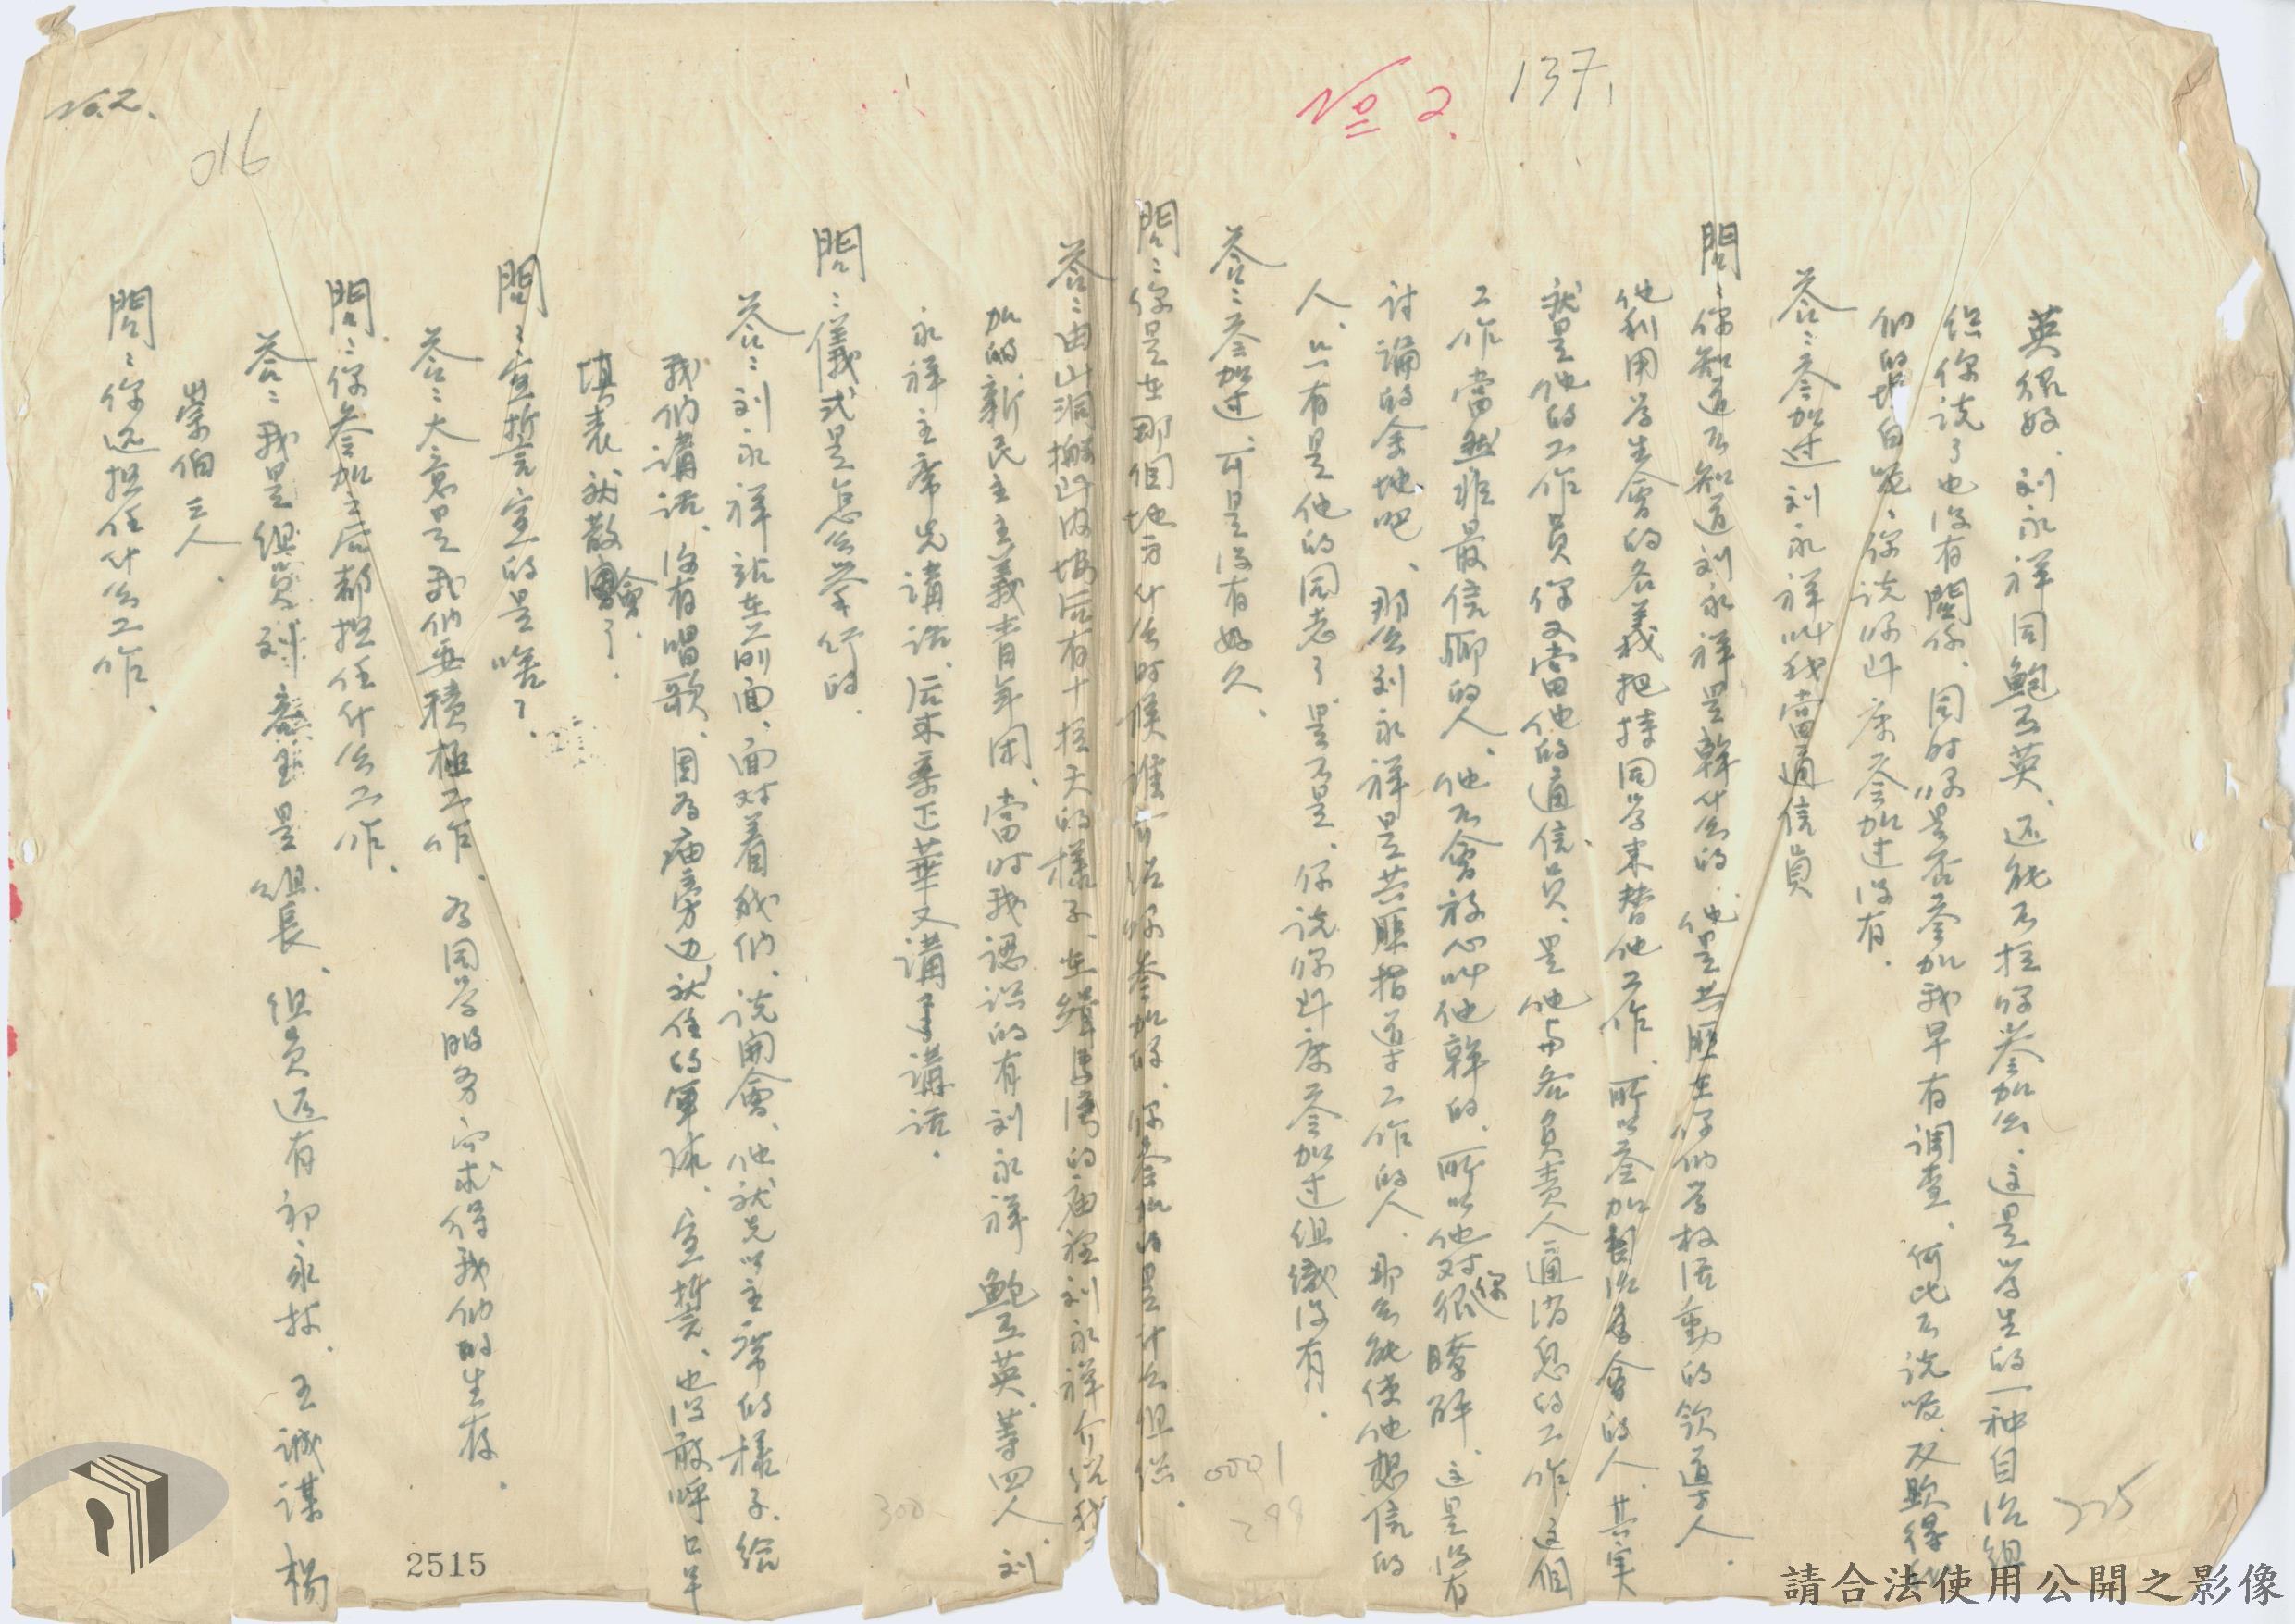 137,
No 2.
英很好、刘永祥同鮑玉英、还能不拉你参加么、这是学生的一种自治組
织你说了也没有關係、同时你是否参加我早有調查、何必不说呢、反
们的坦白呢、你说你到底参加过没有.
答：参加过刘永祥叫我當通信員
問：你知道不知道刘永祥是幹什么的、他是共匪在你们学校活動的領導人.
他利用学生會的名義把持同学来替他工作、所以参加自治會的人、其实
就是他的工作員你又當他的通信員、是他与各負責人通消息的工作、这個
工作當然非最信賴的人、他不會放心叫他幹的、所以他对你很瞭解、这是没有
討論的余地吧、那么刘永祥是共匪指導工作的人、那么能使他想信的
人、只有是他的同志了、是不是、你说你到底参加过組織没有.
答：参加过、可是没有好久、
問：你是在那個地方什么时候誰介绍你参加的、你参加的是什么组织.
答：由山洞搬到内坡后有十拉天的樣子、在的庙裡刘永祥介绍我
加的、新民主主義青年团、當时我認识的有刘永祥 鮑玉英等四人、刘
永祥主席先講话、后来正華又講講话.
問：儀式是怎么举行的.
答：刘永祥站在前面、面对着我们、说開會、他就先以主席的樣子給
我们講话、没有唱歌、因为庙旁边就住的軍隊、宣誓、也没敢呼口号
填表就散會了.
問：宣誓言宣的是啥？
答：大意是我们要積極工作、为同学服务求得我们的生存.
問：你参加之后都担任什么工作.
答：我是組員刘是組長、組員还有郭永材、王誠謀 楊
崇伯三人.
問：你还担任什么工作、
No.2.
016
225
0001
299
300
2515
請合法使用公開之影像